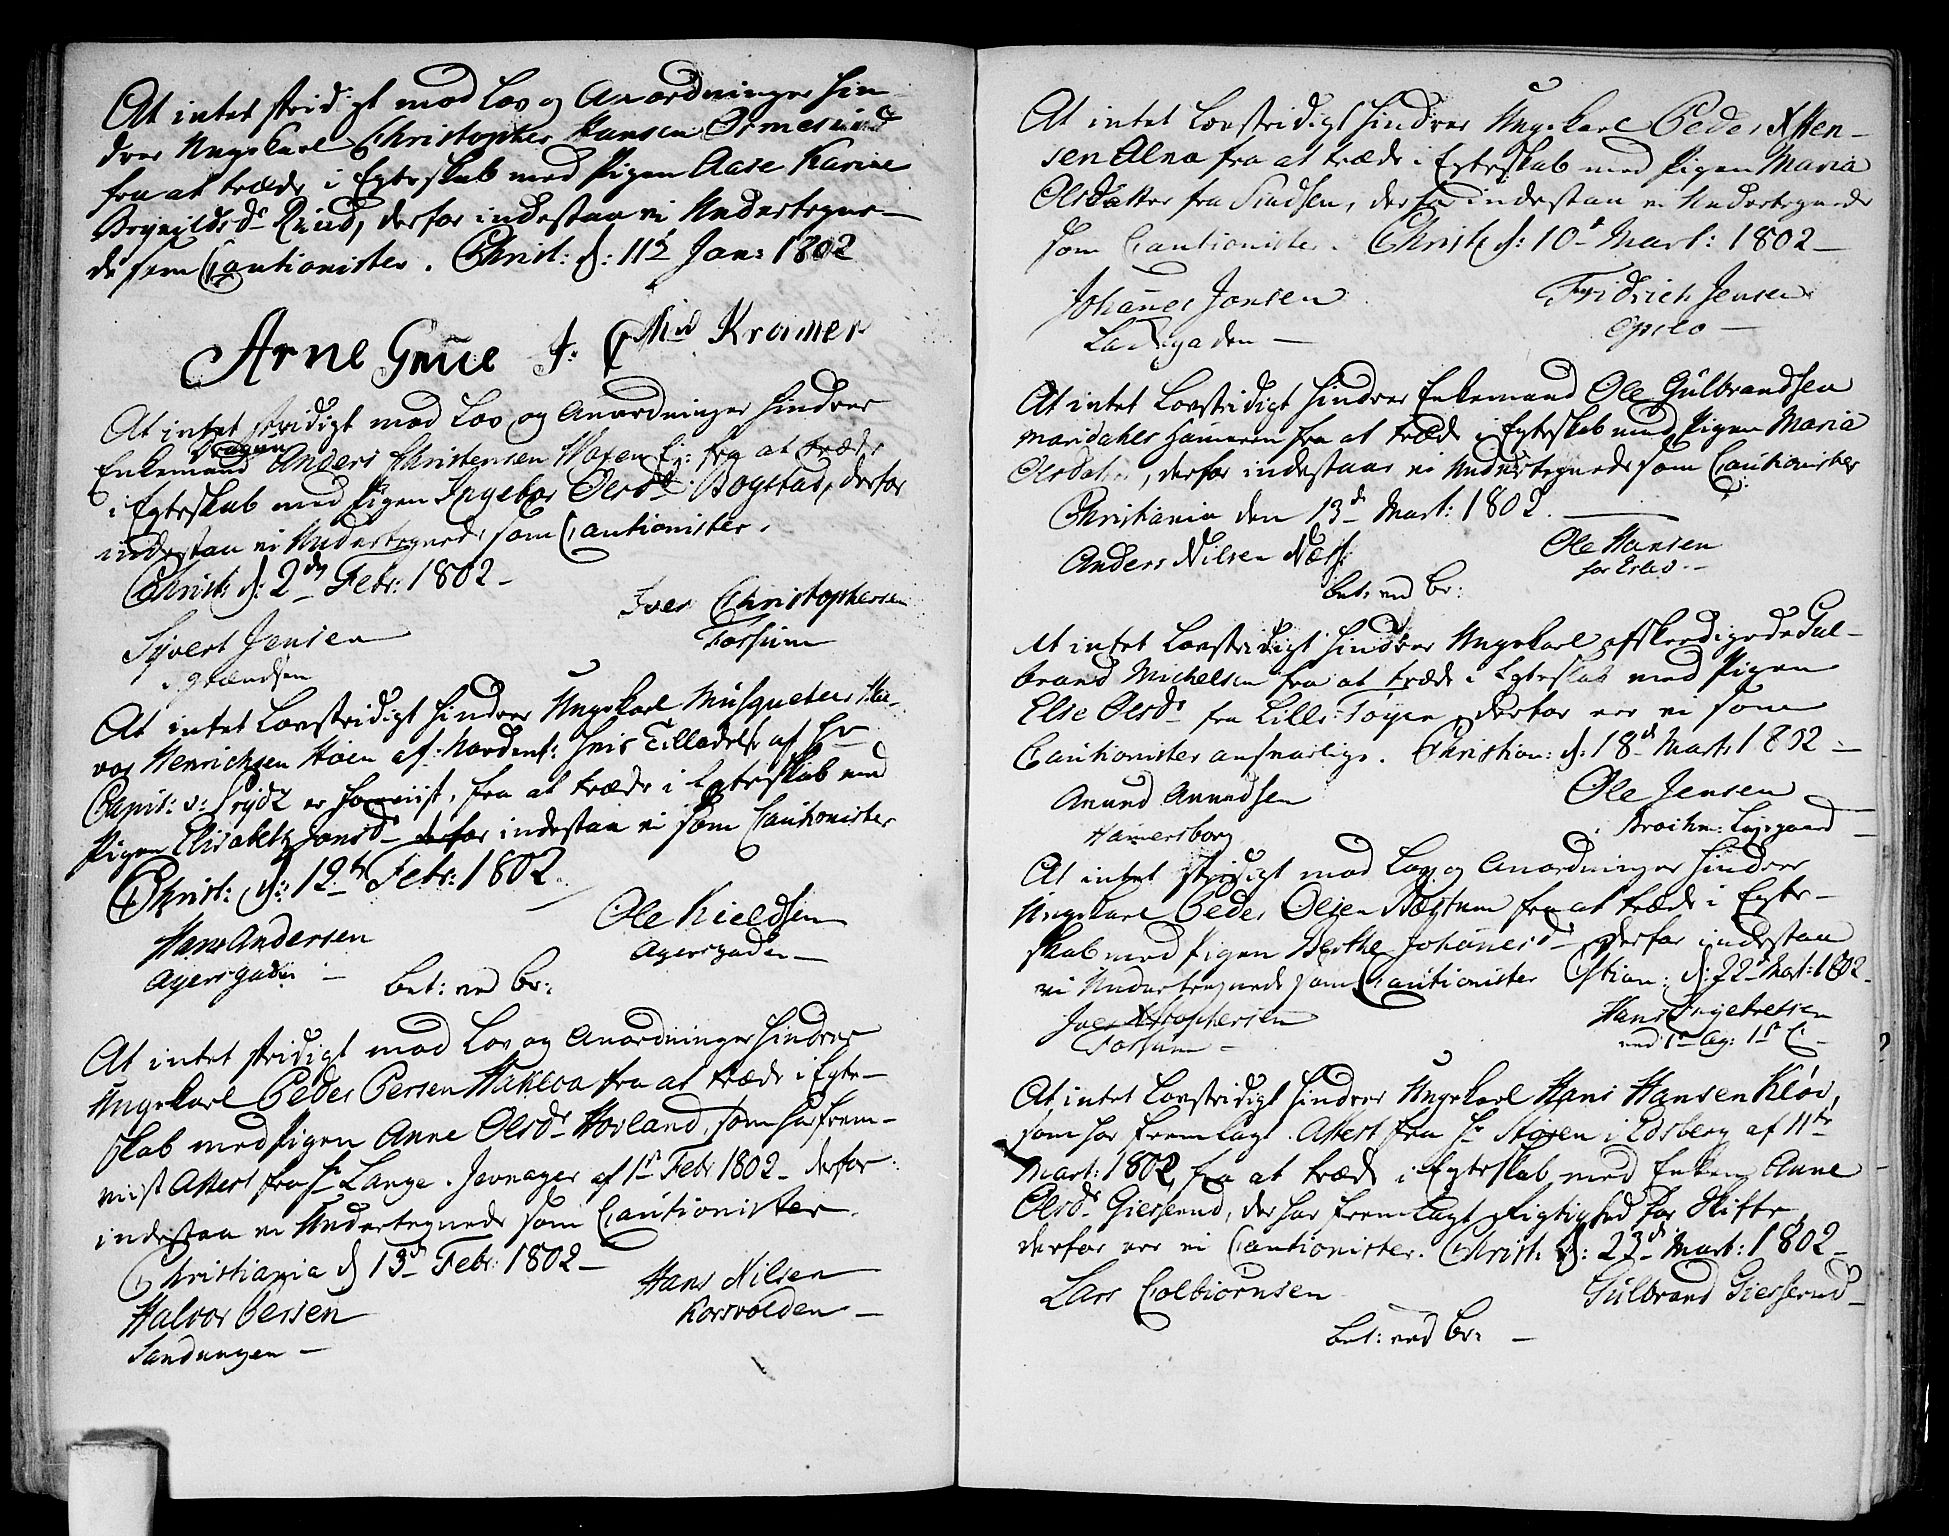 At intet stridigt mod Lov og Anordninger hin-
drer Ungekarl Christopher Hansen Ormesund
fra at træde i Egteskab med Pigen Aase Karine
Brynildsdr Ruud, derfor indestaa vi Undertegne-
de som Cautionister. Christ: d: 11te Jan: 1802
Arne Grüe J: Chr Kramer
At intet stridigt mod Lov og Anordninger hindrer
Dragon
Enkemand Anders Christensen Woxen Ei: fra at træde
i Egteskab med Pigen Ingebor Olsdr Bogstad, derfor
indestaa vi Undertegnede som Cautionister.
Christ: d: 2den Febr: 1802 -
Iver Christophersen
Syvert Jensen Fossum
At intet Lovstridigt hindrer Ungekarl Musqueteer Hal-
vor Henrichsen Hoen af Nordenf: hvis Tilladelse af Hr
Capit: v: Frydz er foreviist, fra at træde i Egteskab med
Pigen Elisabeth Jonsdr derfor indestaa vi som Cautionister
Christ: d: 12te Febr: 1802.
Hans Andersen Ole Kieldsen
Agersgaden - Agersgaden -
bet: ved Br:
At intet stridigt mod Lov og Anordninger hindrer
Ungekarl Peder Persen Hakloa fra at træde i Egte-
skab med Pigen Anne Olsdr Hovland, som har frem-
viist Attest fra Hr Lange i Jevnager af 1st Febr 1802 - derfor
indestaa vi Undertegnede som Cautionister.
Christiania d 13de Febr: 1802 -
Halvor Persen Hans Nilsen
Sandungen - Korsvolden -
At intet Lovstridigt hindrer Ungekarl Peder Xsten-
sen Alna fra at træde i Egteskab med Pigen Maria
Olsdatter fra Sindsen, derfor indestaa vi Undertegnede
som Cautionister. Christ: d: 10de Mart: 1802 -
Johanes Jonsen Fridrich Jensen
Lakkegaden - Opslo -
At intet Lovstridigt hindrer Enkemand Ole Gulbrandsen
Maridahls Hameren fra at træde i Egteskab med Pigen Maria
Olsdater, derfor indestaar vi Undertegnede som Cautionister
Christiania den 13de Mart: 1802.
Anders Nilsen Næss: Ole Hansen
bet: ved Br:
At intet Lovstridigt hindrer Ungekarl afskedigede Gul-
brand Michelsen fra at træde i Egteskab med Pigen
Else Olsdr fra Lille Tøyen derfor ere vi som
Cautionister ansvarlige. Christian: d: 18de Mart: 1802 -
Anund Anundsen Ole Jensen
Hamersborg i Brochm: Løkgaard
At intet stridigt mod Lov og Anordninger hindrer
Ungekarl Peder Olsen Røgstum fra at træde i Egte-
skab med Pigen Berthe Johanesdr derfor indestaa
vi Undertegnede som Cautionister Cstian: d: 22de Mart: 1802
Iver Xstophersen Hans Engebretsen
Fossum - ved 1te Ag: 1ste C -
At intet Lovstridigt hindrer Ungekarl Hans Hansen Kløv,
som har fremlagt Attest fra Hr Støren i Edsberg af 11te
Mart: 1802, fra at træde i Egteskab med Enken Anne
Olsdr Giesserud, der har fremlagt Rigtighed for Skifte,
derfor ere vi Cautionister. Christ: d: 23de Mart: 1802 -
Lars Colbiørnsen Gulbrand Giesserud -
bet: ved Br: -